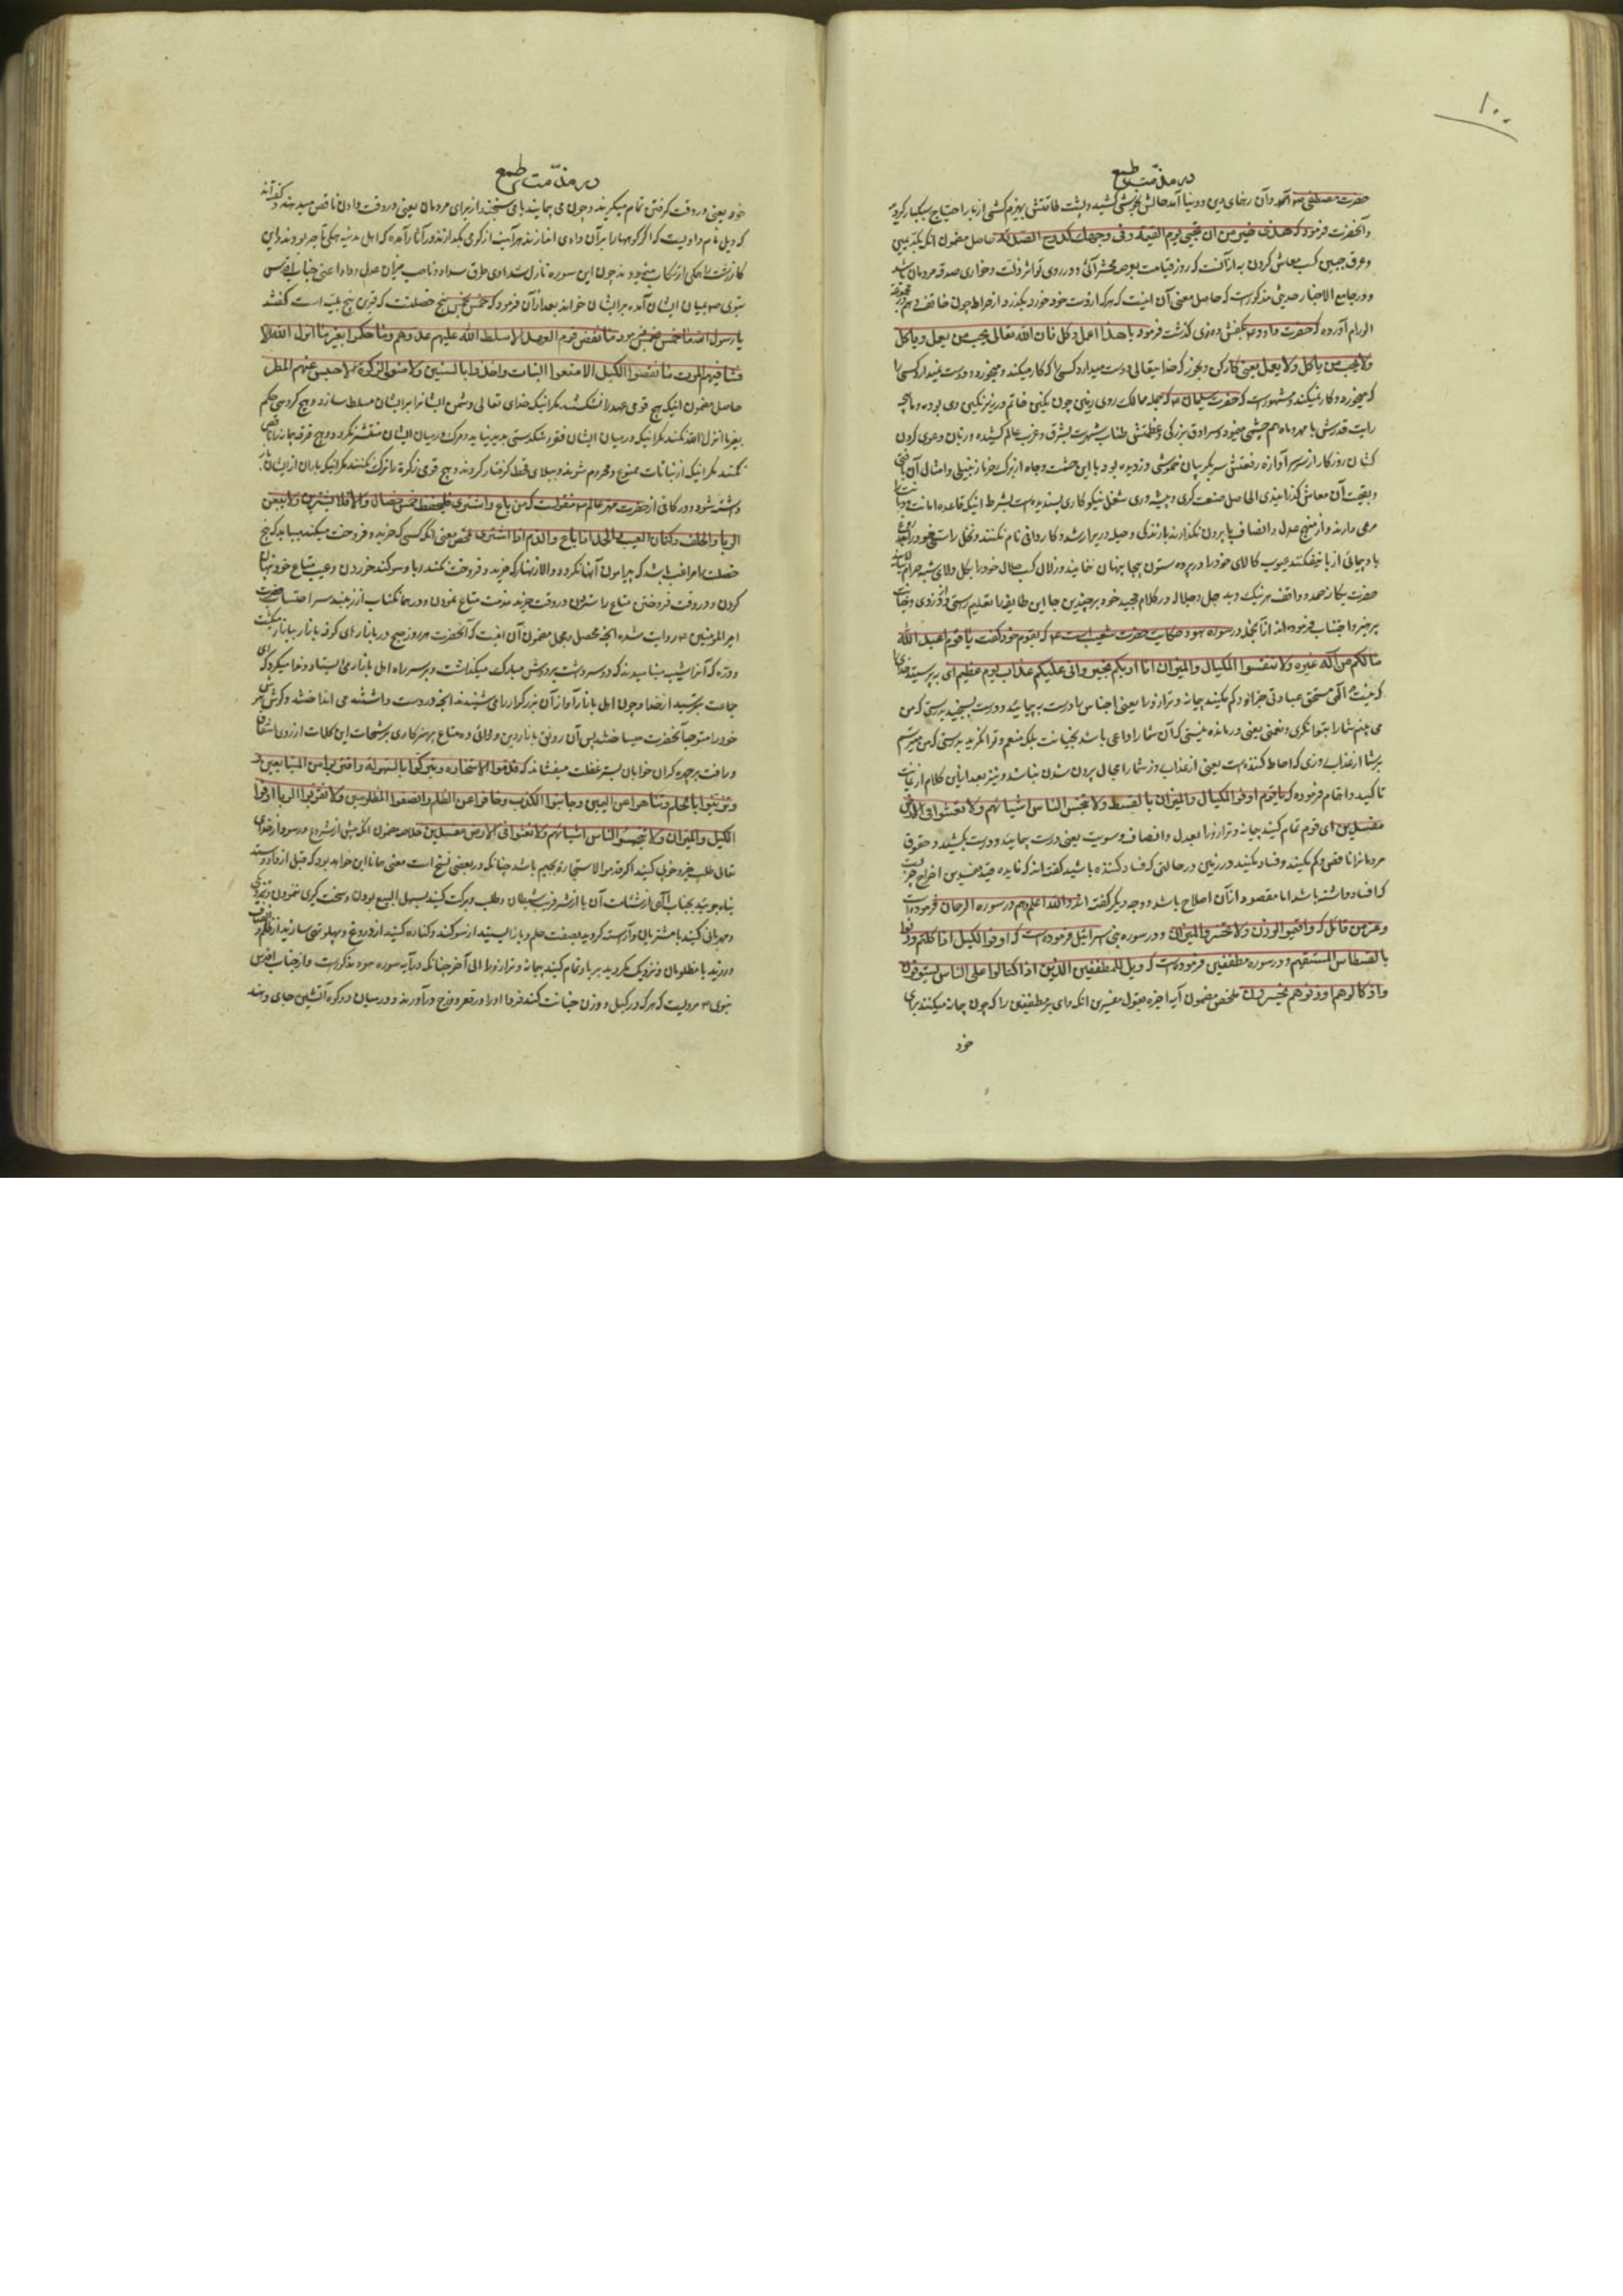 ۱۰۰
در مذمت طمع
حضرت مصطفی ص آمد و آن رهنمای دین و دنیا آمد حالش پرسشی کشید و پشت طاقتش بهیزم کشی از بار احتیاج سبکبار گردید
و آنحضرت فرمود که هذا خیر من ان تجیئ یوم القیمة وفی وجهك كدوح الصدقة حاصل مضمون آنکه
و عرق جبین کسب معاش کردن به از آنست که روز قیامت بعرصه محشر آئی و در روی تو اثر ذلت و خواری صدقه مردمان باشد
و در جامع الاخبار حدیثی مذکور است که حاصل معنی آن اینست که هر که از دست خود خورد بگذرد از صراط چون برق خاطف و هم در مجموعه
الورام آورده که حضرت داود ع بکفش دوزی گذشت فرمود یا هذا اعمل وکل فان الله تعالی یحب من یعمل ویاکل
ولا یحب من یاکل ولا یعمل یعنی کار کن و بخور که خدایتعالی دوست میدارد کسی را که کار میکند و میخورد و دوست نمیدارد کسی را
که میخورد و کار نمیکند و مشهور است که حضرت سلیمان ع که جمله ممالک روی زمین چون نگین خاتم در زیر نگین وی بوده و ماهچه
رایت قدرش با مهر و ماه هم چشمی مینمود و سرادق بزرگی و عظمتش طناب شهرت بشرق و غرب عالم کشیده و زبان دعوی گردن
کشان روزگار از سرسر آوازه رفعتش سر بگریبان خموشی دزدیده بود با این حشمت و جاه از برگ خرما زنبیلی و امثال آن بافتی
و بقیمت آن معاش گذرانیدی الحاصل صنعت گری و پیشه وری شغل نیکو کاری پسندیده است بشرط اینکه قاعده امانت و دیانت را
مرعی دارند و از منهج عدل و انصاف پا بیرون نگذارند
با و بیحیائی از پا نیفکنند عیوب کالای خود را در پرده ستون بیجا پنهان ننمایند و زلال کسب حلال خود را بگل و لای شبهه حرام
حضرت یگانه صمد و واقف هر نیک و بد جل و جلاله در کلام مجید خود بر چندین جا این طایفه را تعلیم
پرهیز و اجتناب فرموده اند از آنجمله در سوره هود حکایت حضرت شعیب است ع که بقوم خود گفت یا قوم اعبدوا الله
مالکم من اله غیره ولا تنقصوا المکیال والمیزان انی اریکم بخیر وانی اخاف علیکم عذاب یوم عظیم ای بپرستید خدای را
که نیست الهی مستحق عبادتی جز او و کم مکنید پیمانه و ترازو را یعنی اجناس را درست به پیمائید و درست بسنجید بدرستی که من
می بینم شما را بتوانگری و نعمتی یعنی درمانده نیستی که آن شما را داعی باشد بخیانت بلکه منعم و توانگرید بدرستی که من میترسم
بر شما از عذاب روزی که احاطه کننده است یعنی از عذاب روز شما را مجال بیرون شدن نباشد و نیز بعد از این کلام از غایت
تاکید و اهتمام فرموده که یا قوم اوفوا المکیال والمیزان بالقسط ولا تبخسوا الناس اشیائهم ولا تعثوا فی الارض
مفسدین ای قوم تمام کنید پیمانه و ترازو را بعدل و انصاف و سویت یعنی درست بپیمائید و درست بکشید و حقوق
مردمانرا ناقص و کم مکنید و فساد مکنید در زمین در حالتی که فساد کننده باشید گفته اند که فایده قید مفسدین اخراج چیزیست
که افساد داشته باشد اما مقصود از آن اصلاح باشد و وجه دیگر گفته اند والله اعلم و هم در سوره الرحمن فرموده است
و عز من قائل که واقیموا الوزن ولا تخسروا المیزان و در سوره بنی اسرائیل فرموده است که اوفوا الکیل اذا کلتم وزنوا
بالقسطاس المستقیم و در سوره مطففین فرموده است که ویل للمطففین الذین اذا اکتالوا علی الناس یستوفون
واذا کالوهم او وزنوهم یخسرون ملخص مضمون آیه اخیره بقول مفسرین آنکه وای بر مطففین را که چون پیمانه میکنند برای
خود
در مذمت طمع
خود یعنی در وقت گرفتن تمام میگیرند و چون می پیمایند یا می سنجند از برای مردمان یعنی در وقت دادن ناقص میدهند و گفته اند
که ویل نام وادیست که اگر کوهها را بر آن وادی اندازند هر آینه از گرمی بگدازند و در آثار آمده که اهل مدینه همگی تاجر بودند و این
کار زشت را همگی ارتکاب مینمودند چون این سوره نازل شد
نبوی ص بمیان ایشان آمده بر ایشان خواند بعد از آن فرمود که خمس بخمس پنج خصلتست که قرین پنج بلیه است گفتند
یا رسول الله ما خمس بخمس فرمود ما نقض قوم العهد الا سلط الله علیهم عدوهم وما حکموا بغیر ما انزل الله الا
فشا فیهم الموت ما نقصوا الکیل الا منعوا النبات واخذوا بالسنین ولا منعوا الزکوة الا حبس عنهم المطر
حاصل مضمون اینکه هیچ قومی عهد را نشکستند مگر اینکه خدای تعالی دشمن ایشانرا بر ایشان مسلط سازد و هیچ گروهی حکم
بغیر ما انزل الله نکنند مگر اینکه در میان ایشان فقر و شکستی پدید نیاید و مرگ در میان ایشان منتشر نگردد و هیچ فرقه پیمانه را ناقص
نکنند مگر اینکه از نباتات ممنوع و محروم شوند و ببلای قحط گرفتار گردند و هیچ قومی زکوة را ترک نکنند مگر اینکه باران از ایشان باز
داشته شود و در کافی از حضرت مهتر عالم ص منقولست که من باع واشتری فلیحفظ خمس خصال والا فلا یشترین ولا یبیعن
الربا والحلف وکتمان العیب والحمد اذا باع والذم اذا اشتری ملخص معنی آنکه کسی که خرید و فروخت میکند میباید که پنج
خصلت را مراقب باشد که پیرامون آنها نگردد و الا زنهار که خرید و فروخت نکند ربا و سوگند خوردن و عیب متاع خود پنهان
کردن و در وقت فروختن متاع را ستودن و در وقت خرید مذمت متاع نمودن
امیر المؤمنین ع روایت شده آنچه محصل و مجمل مضمون آن اینست که آنحضرت هر روز صبح در بازارهای کوفه بازار ببازار میگشت
و دره که آنرا سبیبه مینامیدند که دو سر داشت بر دوش مبارک میگذاشت و بر سر راه اهل بازار می ایستاد و ندا میکرد که ای
جماعت بترسید از خدا و چون اهل بازار آواز آن بزرگوار را می شنیدند آنچه در دست داشتند می انداختند و گوش
خود را متوجه آنحضرت میساختند پس آن رونق بازار دین
و رافت بر چهره گران خوابان بستر غفلت میفشاند که قدموا الاستخاره وتبرکوا بالسهولة واقتربوا من المتبایعین
وتزینوا بالحلم وتناهوا عن الیمین وجانبوا الکذب وتجافوا عن الظلم وانصفوا المظلومین ولا تقربوا الربا اوفوا
الکیل والمیزان ولا تبخسوا الناس اشیائهم ولا تعثوا فی الارض مفسدین خلاصه مضمون آنکه پیش از شروع در سودا از خدای
تعالی طلب خیر و خوبی کنید
پناه جوئید بجناب آلهی از شئامت آن یا از شر فریب شیطان و طلب برکت کنید بسهل البیع بودن و سخت گیری ننمودن
و مهربانی کنید با مشتریان و آراسته گردید بصفت حلم و باز ایستید از سوگند و کناره کنید از دروغ و پهلو تهی سازید از ظلم و انصاف
ورزید با مظلومان و نزدیک مگردید بربا و تمام کنید پیمانه و ترازو را الی آخر چنانکه در آیه سوره هود مذکور است و از جناب اقدس
نبوی ص مرویست که هر که در کیل و وزن خیانت کند فردا او را در قعر دوزخ در آورند و در میان دو کوه آتشین جای دهند